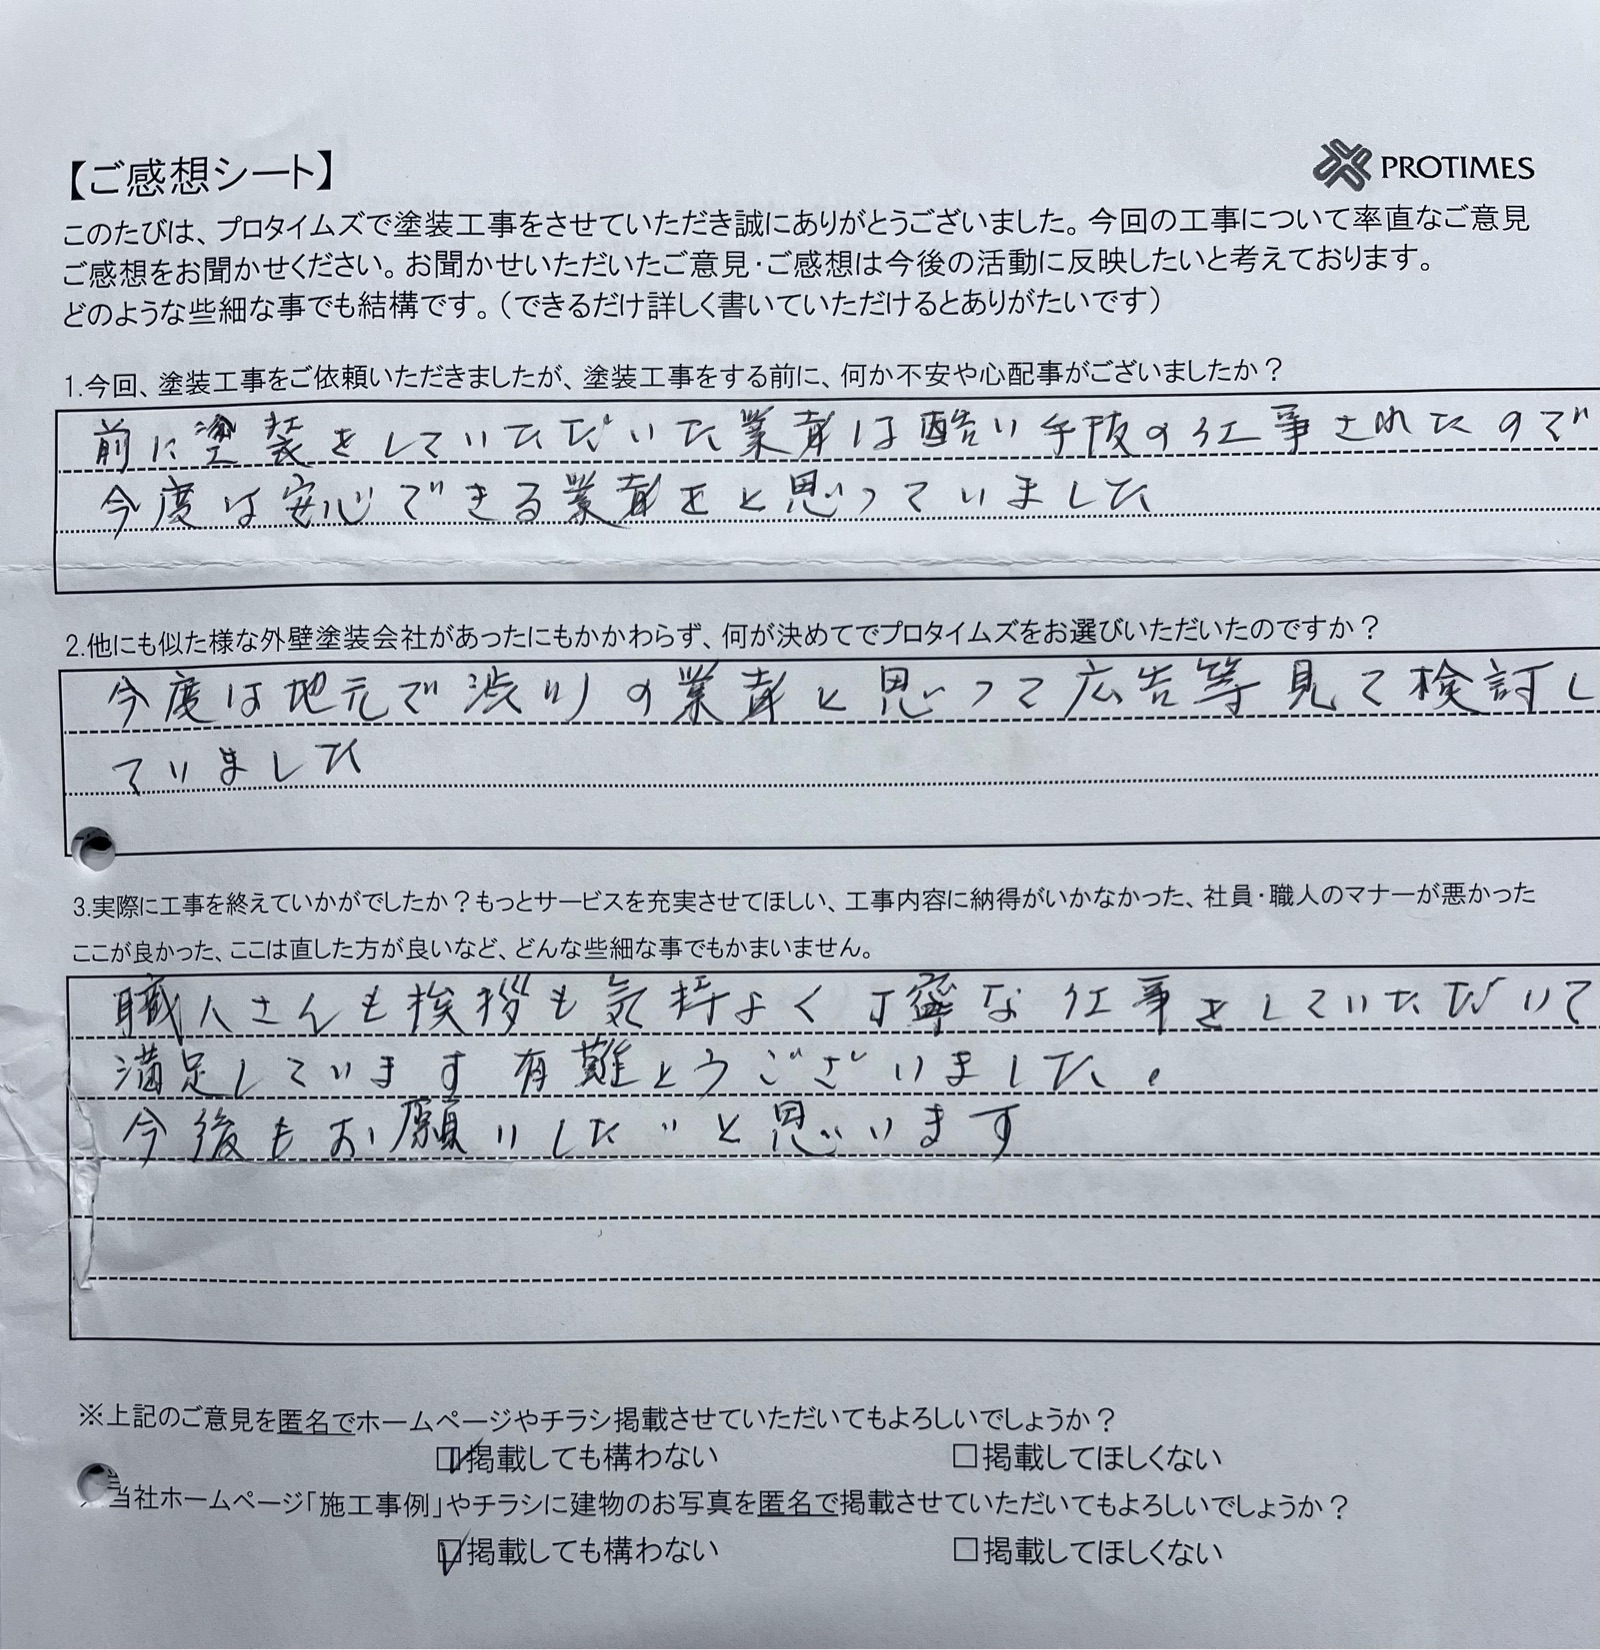 【ご感想シート】
PROTIMES
このたびは、プロタイムズで塗装工事をさせていただき誠にありがとうございました。今回の工事について率直なご意見
ご感想をお聞かせください。お聞かせいただいたご意見・ご感想は今後の活動に反映したいと考えております。
どのような些細な事でも結構です。（できるだけ詳しく書いていただけるとありがたいです）
1.今回、塗装工事をご依頼いただきましたが、塗装工事をする前に、何か不安や心配事がございましたか？
前に塗装をしていただいた業者は酷い手抜の仕事されたので
今度は安心できる業者をと思っていました
2.他にも似た様な外壁塗装会社があったにもかかわらず、何が決めてでプロタイムズをお選びいただいたのですか？
今度は地元で渋川の業者と思って広告等見て検討し
ていました
3.実際に工事を終えていかがでしたか？もっとサービスを充実させてほしい、工事内容に納得がいかなかった、社員・職人のマナーが悪かった
ここが良かった、ここは直した方が良いなど、どんな些細な事でもかまいません。
職人さんも挨拶も気持よく丁寧な仕事をしていただいて
満足しています 有難とうございました。
今後もお願いしたいと思います
※上記のご意見を匿名でホームページやチラシ掲載させていただいてもよろしいでしょうか？
☑掲載しても構わない □掲載してほしくない
当社ホームページ「施工事例」やチラシに建物のお写真を匿名で掲載させていただいてもよろしいでしょうか？
☑掲載しても構わない □掲載してほしくない